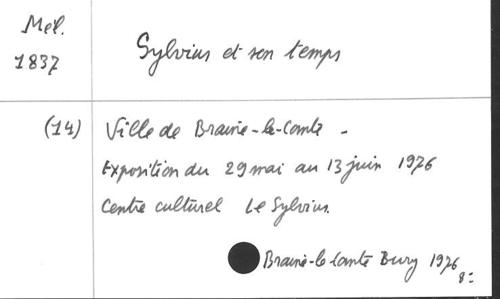 Mel.
1837
Sylvius et son temps
(14) Ville de Braine-le-Comte -
Exposition du 29 mai au 13 juin 1976
Centre culturel Le Sylvius.
Braine-le Comte Bury 1976
8: